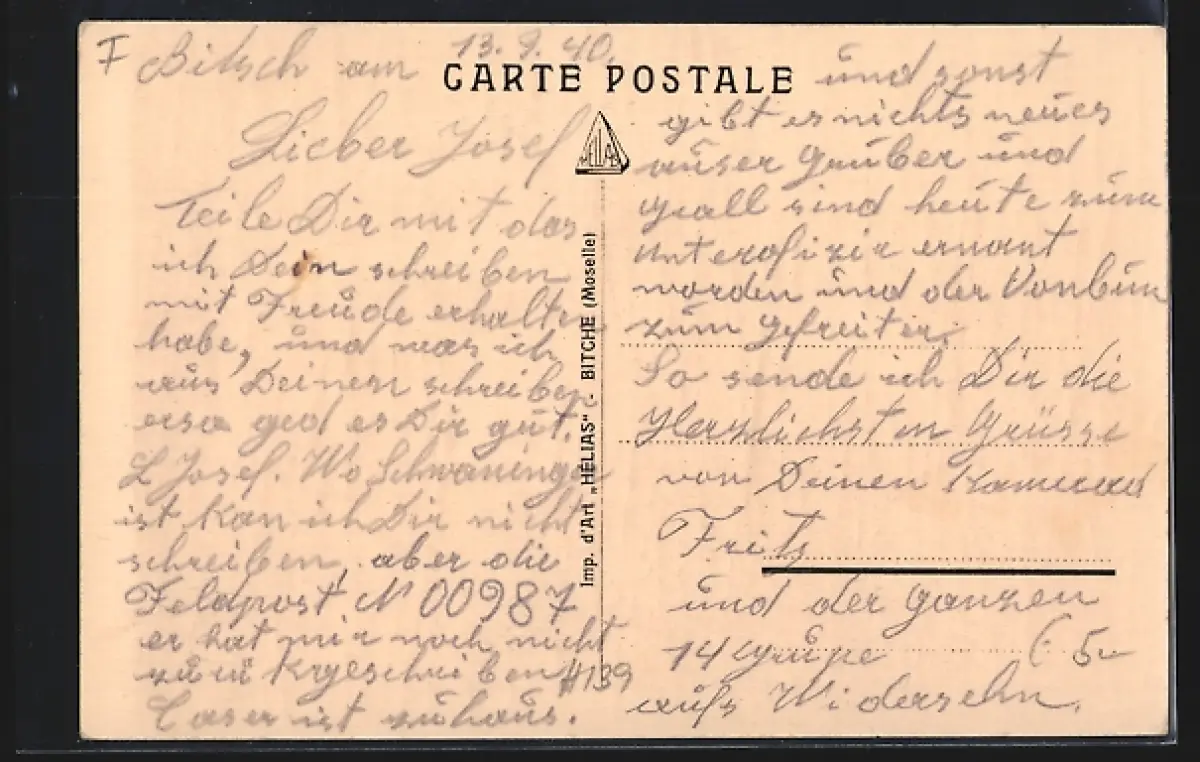 F Bitsch am 13.9.40.
CARTE POSTALE
Lieber Josef
Teile Dir mit das
ich Dein schreiben
mit Freude erhalten
habe, und was ich
aus Deinen schreiben
ersa ged es Dir gut.
L Josef. Wo Schwaninger
ist kan ich Dir nicht
schreiben, aber die
Feldpost N 00987
er hat mir noch nicht
geschrieben
ist zuhaus.
HELIAS
Imp. d'Art „HELIAS" - BITCHE (Moselle)
#139
und sonst
gibt es nichts neues
auser Gruber und
Grall sind heute zum
Unterofizir ernant
worden und der Vonbun
zum gefreiter.
So sende ich Dir die
Herzlichsten Grüsse
von Deinen Kamerad
Fritz
und der ganzen
14 Grupe
aufs Widersehn.